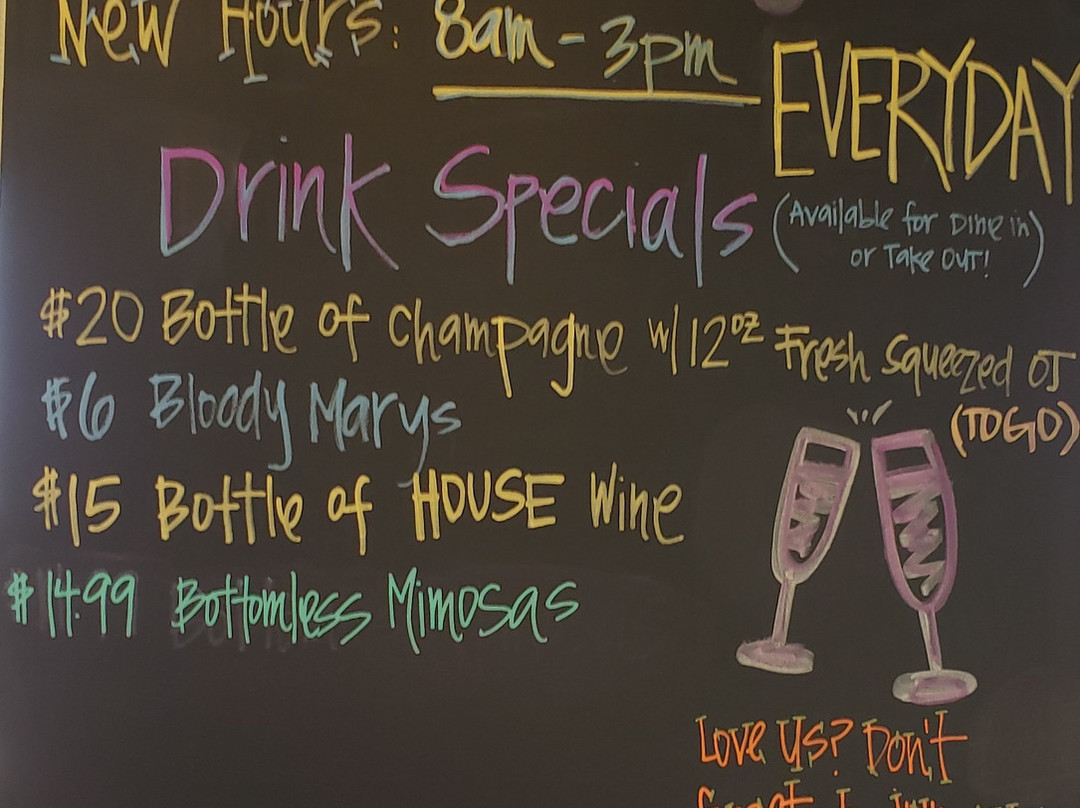 New Hours: 8am - 3pm
EVERYDAY
Drink Specials
(Available for Dine in)
or Take OUT!
$20 Bottle of Champagne w/ 12oz Fresh Squeezed OJ
(TO GO)
$6 Bloody Marys
$15 Bottle of HOUSE Wine
$14.99 Bottomless Mimosas
Love Us? Don't